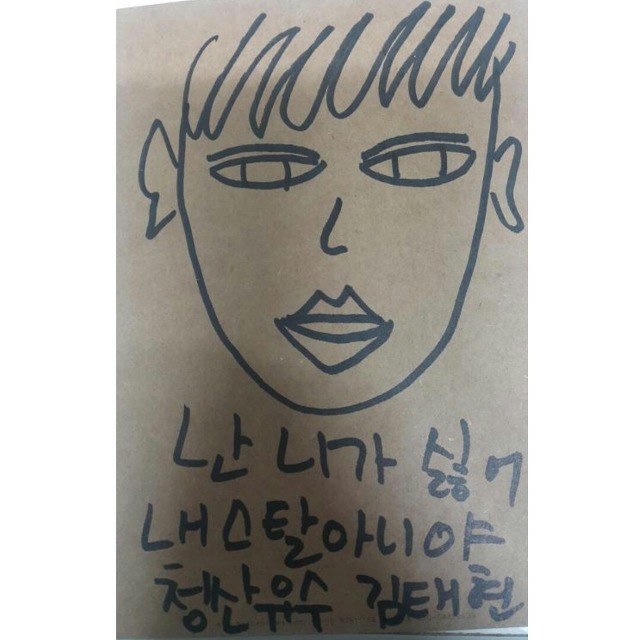 난 니가 싫어
내스탈아니야
청산유수 김태현